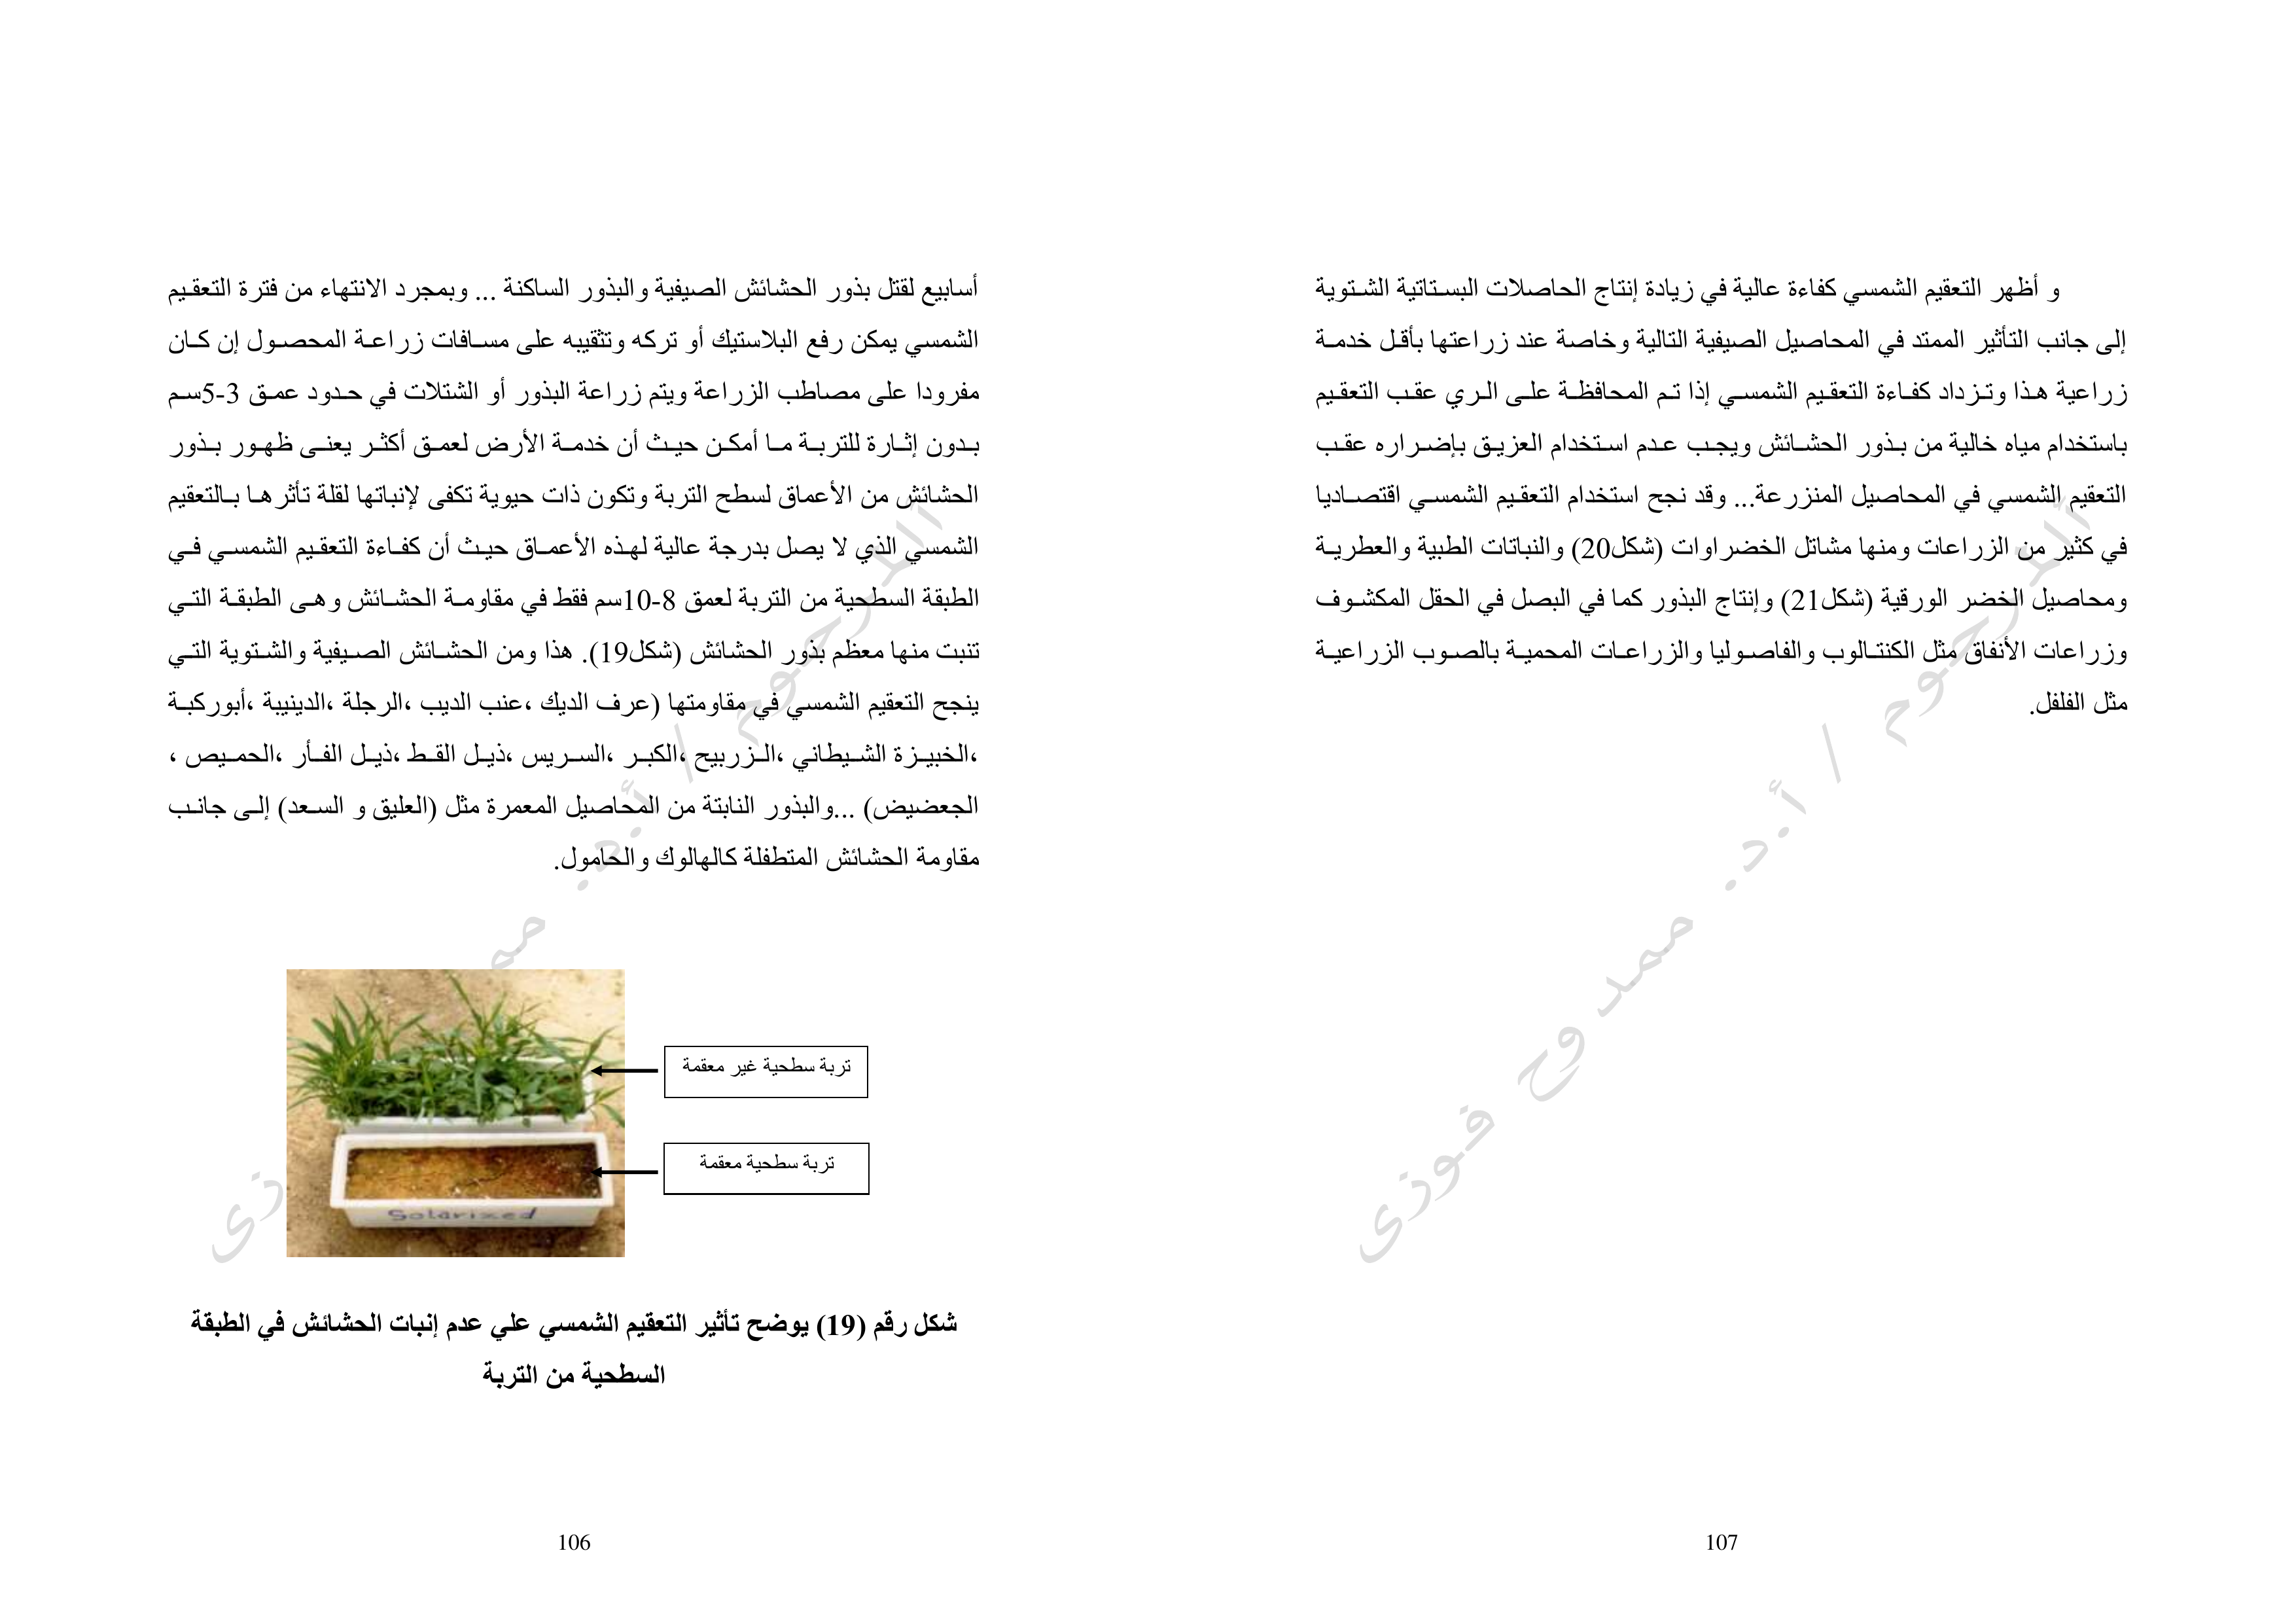 أسابيع لقتل بذور الحشائش الصيفية والبذور الساكنة ... وبمجرد الانتهاء من فترة التعقيم
الشمسي يمكن رفع البلاستيك أو تركه وتثقيبه على مسافات زراعة المحصول إن كان
مفرودا على مصاطب الزراعة ويتم زراعة البذور أو الشتلات في حدود عمق 3-5سم
بدون إثارة للتربة ما أمكن حيث أن خدمة الأرض لعمق أكثر يعنى ظهور بذور
الحشائش من الأعماق لسطح التربة وتكون ذات حيوية تكفى لإنباتها لقلة تأثرها بالتعقيم
الشمسي الذي لا يصل بدرجة عالية لهذه الأعماق حيث أن كفاءة التعقيم الشمسي في
الطبقة السطحية من التربة لعمق 8-10سم فقط في مقاومة الحشائش وهى الطبقة التي
تنبت منها معظم بذور الحشائش (شكل19). هذا ومن الحشائش الصيفية والشتوية التي
ينجح التعقيم الشمسي في مقاومتها (عرف الديك ،عنب الديب ،الرجلة ،الدينيبة ،أبوركبة
،الخبيزة الشيطاني ،الزربيح ،الكبر ،السريس ،ذيل القط ،ذيل الفأر ،الحميص ،
الجعضيض) ...والبذور النابتة من المحاصيل المعمرة مثل (العليق و السعد) إلى جانب
مقاومة الحشائش المتطفلة كالهالوك والحامول.
تربة سطحية غير معقمة
تربة سطحية معقمة
Solarized
شكل رقم (19) يوضح تأثير التعقيم الشمسي علي عدم إنبات الحشائش في الطبقة
السطحية من التربة
106
و أظهر التعقيم الشمسي كفاءة عالية في زيادة إنتاج الحاصلات البستاتية الشتوية
إلى جانب التأثير الممتد في المحاصيل الصيفية التالية وخاصة عند زراعتها بأقل خدمة
زراعية هذا وتزداد كفاءة التعقيم الشمسي إذا تم المحافظة على الري عقب التعقيم
باستخدام مياه خالية من بذور الحشائش ويجب عدم استخدام العزيق بإضراره عقب
التعقيم الشمسي في المحاصيل المنزرعة... وقد نجح استخدام التعقيم الشمسي اقتصاديا
في كثير من الزراعات ومنها مشاتل الخضراوات (شكل20) والنباتات الطبية والعطرية
ومحاصيل الخضر الورقية (شكل21) وإنتاج البذور كما في البصل في الحقل المكشوف
وزراعات الأنفاق مثل الكنتالوب والفاصوليا والزراعات المحمية بالصوب الزراعية
مثل الفلفل.
المرحوم / أ.د. ممدوح فوزى
107